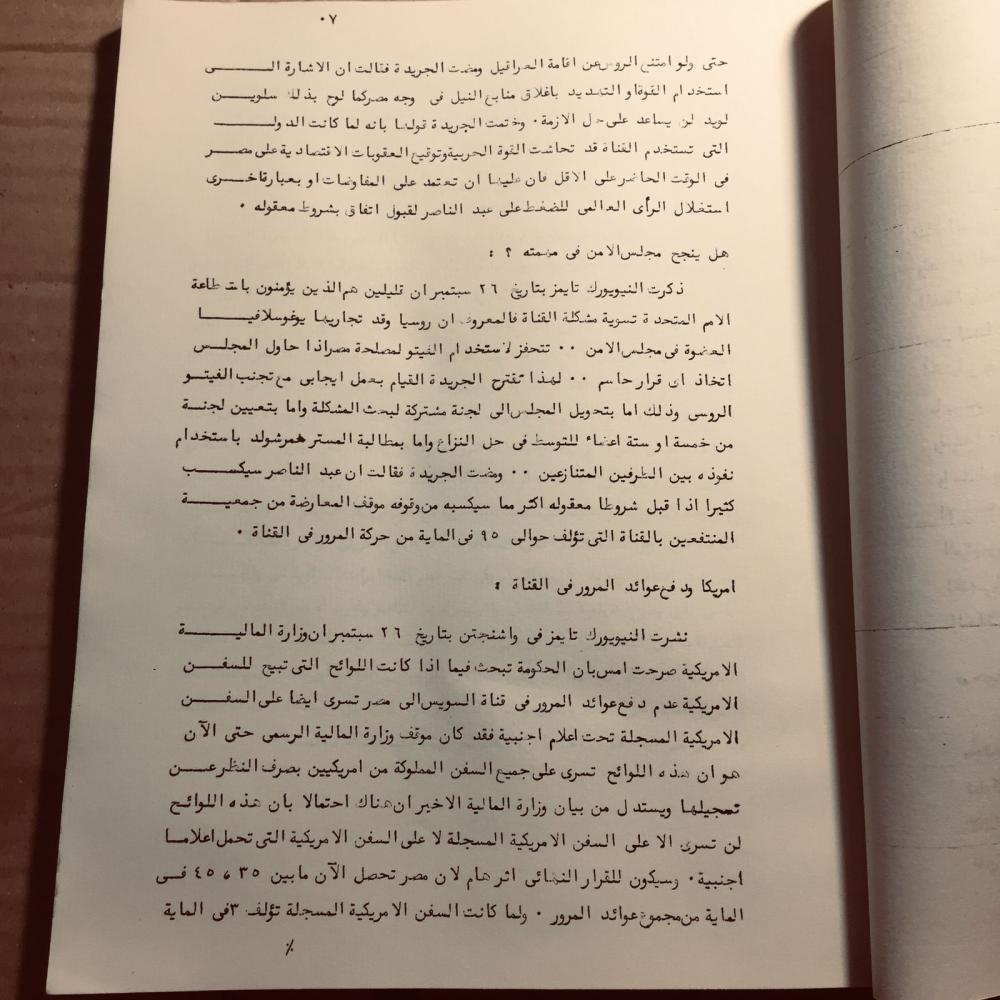 ٠٧
حتى ولو امتنع الروس عن اقامة العراقيل ومضت الجريدة فقالت ان الاشارة الـــى
استخدام القوة او التهديد باغلاق منابع النيل فى وجه مصر كما لوح بذلك سلويـــن
لويد لن يساعد على حل الازمة ٠ وختمت الجريدة قولها بانه لما كانت الدولـــ
التى تستخدم القناة قد تحاشت القوة الحربية وتوقيع العقوبات الاقتصادية على مصـــر
فى الوقت الحاضر على الاقل فان عليها ان تعتمد على المفاوضات او بعبارة اخـــرى
استغلال الرأى العالمى للضغط على عبد الناصر لقبول اتفاق بشروط معقوله ٠
هل ينجح مجلس الامن فى مهمته ؟ :
ذكرت النيويورك تايمز بتاريخ ٢٦ سبتمبر ان قليلين هم الذين يؤمنون باستطاعة
الامم المتحدة تسوية مشكلة القناة فالمعروف ان روسيا وقد تجاريها يوغوسلافيـــا
العضوة فى مجلس الامن ٠٠ تتحفز لاستخدام الفيتو لمصلحة مصر اذا حاول المجلـــس
اتخاذ اى قرار حاسم ٠٠ لهذا تقترح الجريدة القيام بعمل ايجابى مع تجنب الفيتـــو
الروسى وذلك اما بتحويل المجلس الى لجنة مشتركة لبحث المشكلة واما بتعيين لجنـــة
من خمسة او ستة اعضاء للتوسط فى حل النزاع واما بمطالبة المستر همرشولد باستخدام
نفوذه بين الطرفين المتنازعين ٠٠ ومضت الجريدة فقالت ان عبد الناصر سيكســـب
كثيرا اذا قبل شروطا معقوله اكثر مما سيكسبه من وقوفه موقف المعارضة من جمعيـــة
المنتفعين بالقناة التى تؤلف حوالى ٩٥ فى الماية من حركة المرور فى القناة ٠
امريكا ودفع عوائد المرور فى القناة :
نشرت النيويورك تايمز فى واشنجتن بتاريخ ٢٦ سبتمبر ان وزارة الماليـــة
الامريكية صرحت امس بان الحكومة تبحث فيما اذا كانت اللوائح التى تبيح للسفـــن
الامريكية عدم دفع عوائد المرور فى قناة السويس الى مصر تسرى ايضا على السفـــن
الامريكية المسجلة تحت اعلام اجنبية فقد كان موقف وزارة المالية الرسمى حتى الآن
هو ان هذه اللوائح تسرى على جميع السفن المملوكة من امريكيين بصرف النظر عـــن
تسجيلها ويستدل من بيان وزارة المالية الاخير ان هناك احتمالا بان هذه اللوائح
لن تسرى الا على السفن الامريكية المسجلة لا على السفن الامريكية التى تحمل اعلامـــا
اجنبية ٠ وسيكون للقرار النهائى اثر هام لان مصر تحصل الآن مابين ٣٥ ، ٤٥ فـــى
الماية من مجموع عوائد المرور ٠ ولما كانت السفن الامريكية المسجلة تؤلف ٣ فى الماية
٪